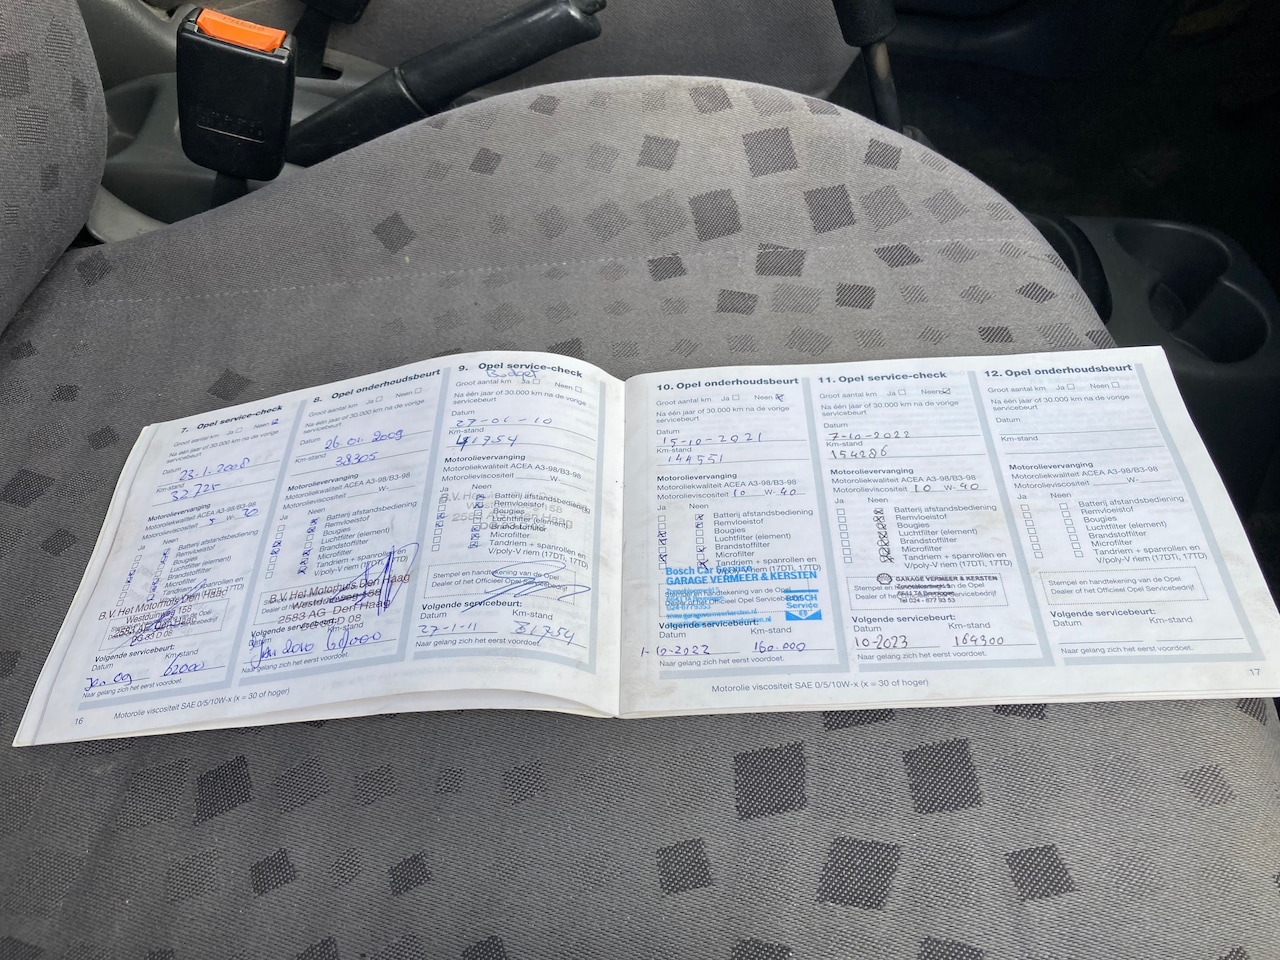 7. Opel service-check
Groot aantal km Ja Neen
Na één jaar of 30.000 km na de vorige
servicebeurt
Datum
23-1-2008
Km-stand
32.725
Motorolievervanging
Motoroliekwaliteit ACEA A3-98/B3-98
Motorolieviscositeit 5 W- 30
Ja Neen
Batterij afstandsbediening
Remvloeistof
Bougies
Luchtfilter (element)
Brandstoffilter
Microfilter
Tandriem + spanrollen en
B.V. Het Motorhuis Den Haag
Westduinweg 158
2583 AG Den Haag
Volgende servicebeurt:
Datum Km-stand
62000
Naar gelang zich het eerst voordoet.
16
8. Opel onderhoudsbeurt
Groot aantal km Ja Neen
Na één jaar of 30.000 km na de vorige
servicebeurt
Datum
26-01-2009
Km-stand
38305
Motorolievervanging
Motoroliekwaliteit ACEA A3-98/B3-98
Motorolieviscositeit W-
Ja Neen
Batterij afstandsbediening
Remvloeistof
Bougies
Luchtfilter (element)
Brandstoffilter
Microfilter
Tandriem + spanrollen en
V/poly-V riem (17DTi, 17TD)
B.V. Het Motorhuis Den Haag
Westduinweg 158
2583 AG Den Haag
Volgende servicebeurt:
Km-stand
Jan 2010
Naar gelang zich het eerst voordoet.
9. Opel service-check
Budget
Groot aantal km Ja Neen
Na één jaar of 30.000 km na de vorige
servicebeurt
Datum
27-01-10
Km-stand
41754
Motorolievervanging
Motoroliekwaliteit ACEA A3-98/B3-98
Motorolieviscositeit W-
Ja Neen
Batterij afstandsbediening
Remvloeistof
Bougies
Luchtfilter (element)
Brandstoffilter
Microfilter
Tandriem + spanrollen en
V/poly-V riem (17DTi, 17TD)
Stempel en handtekening van de Opel
Dealer of het Officieel Opel Servicebedrijf
Volgende servicebeurt:
Datum Km-stand
27-1-11
Naar gelang zich het eerst voordoet.
Motorolie viscositeit SAE 0/5/10W-x (x = 30 of hoger)
10. Opel onderhoudsbeurt
Groot aantal km Ja Neen
Na één jaar of 30.000 km na de vorige
servicebeurt
Datum
15-10-2021
Km-stand
144551
Motorolievervanging
Motoroliekwaliteit ACEA A3-98/B3-98
Motorolieviscositeit 10 W- 40
Ja Neen
Batterij afstandsbediening
Remvloeistof
Bougies
Luchtfilter (element)
Brandstoffilter
Microfilter
Tandriem + spanrollen en
V/poly-V riem (17DTi, 17TD)
Bosch Car Service
GARAGE VERMEER & KERSTEN
BOSCH
Service
Volgende servicebeurt:
Datum Km-stand
1-10-2022 160.000
Naar gelang zich het eerst voordoet.
11. Opel service-check
Groot aantal km Ja Neen
Na één jaar of 30.000 km na de vorige
servicebeurt
Datum
7-10-2022
Km-stand
154286
Motorolievervanging
Motoroliekwaliteit ACEA A3-98/B3-98
Motorolieviscositeit 10 W- 40
Ja Neen
Batterij afstandsbediening
Remvloeistof
Bougies
Luchtfilter (element)
Brandstoffilter
Microfilter
Tandriem + spanrollen en
V/poly-V riem (17DTi, 17TD)
GARAGE VERMEER & KERSTEN
Tel 024 - 677 93 53
Volgende servicebeurt:
Datum Km-stand
10-2023 169300
Naar gelang zich het eerst voordoet.
12. Opel onderhoudsbeurt
Groot aantal km Ja Neen
Na één jaar of 30.000 km na de vorige
servicebeurt
Datum
Km-stand
Motorolievervanging
Motoroliekwaliteit ACEA A3-98/B3-98
Motorolieviscositeit W-
Ja Neen
Batterij afstandsbediening
Remvloeistof
Bougies
Luchtfilter (element)
Brandstoffilter
Microfilter
Tandriem + spanrollen en
V/poly-V riem (17DTi, 17TD)
Stempel en handtekening van de Opel
Dealer of het Officieel Opel Servicebedrijf
Volgende servicebeurt:
Datum Km-stand
Naar gelang zich het eerst voordoet.
Motorolie viscositeit SAE 0/5/10W-x (x = 30 of hoger)
17